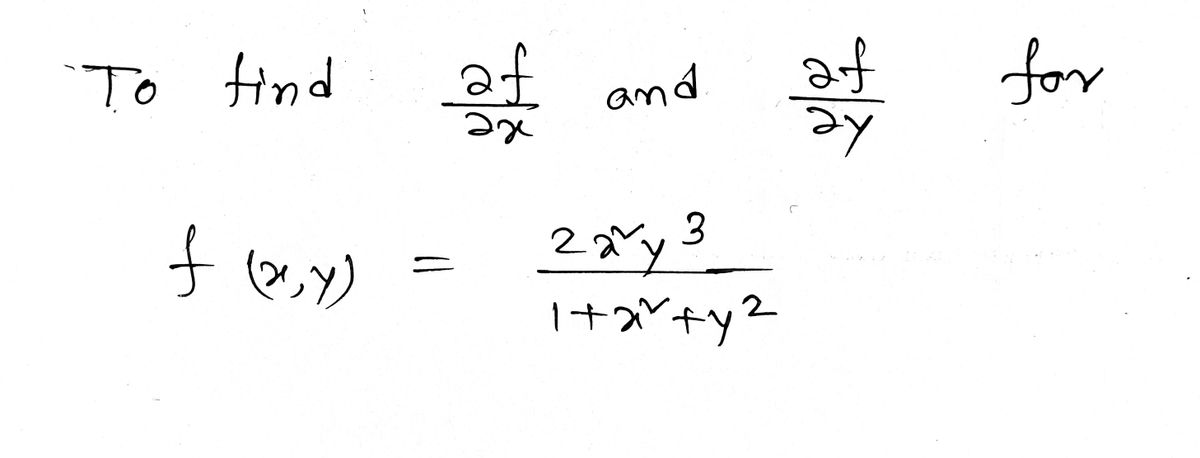 To find ∂f/∂x and ∂f/∂y for
f (x,y) = 2x²y³/(1+x²+y²)